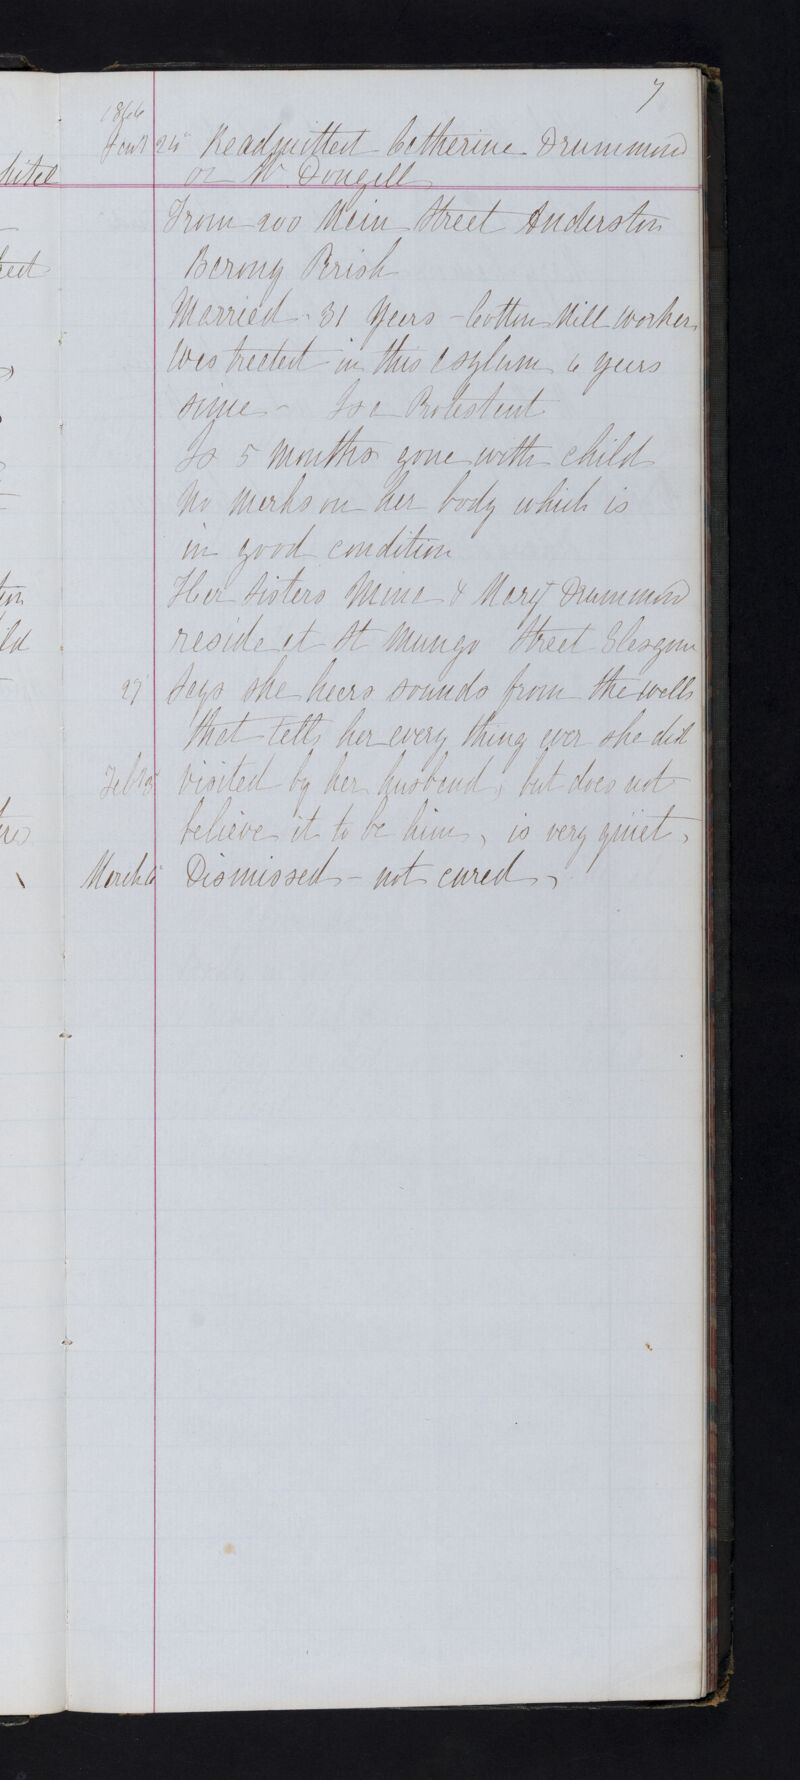 7
1866
Jany 24 Readmitted Catherine Drummond
or Mc Dougall
From 200 Main Street Anderston
Barony Parish
Married - 31 years - Cotton Mill worker
Was treated in this asylum 6 years
since - Is a Protestant
Is 5 months gone with child
No marks on her body which is
in good condition
Her sisters Mina & Mary Drummond
reside at St Mungo Street Glasgow
27 Says she hears sounds from the walls
that tells her every thing ever she did
Feby visited by her husband, but does not
believe it to be him, is very quiet,
March 6 Dismissed - not cured,